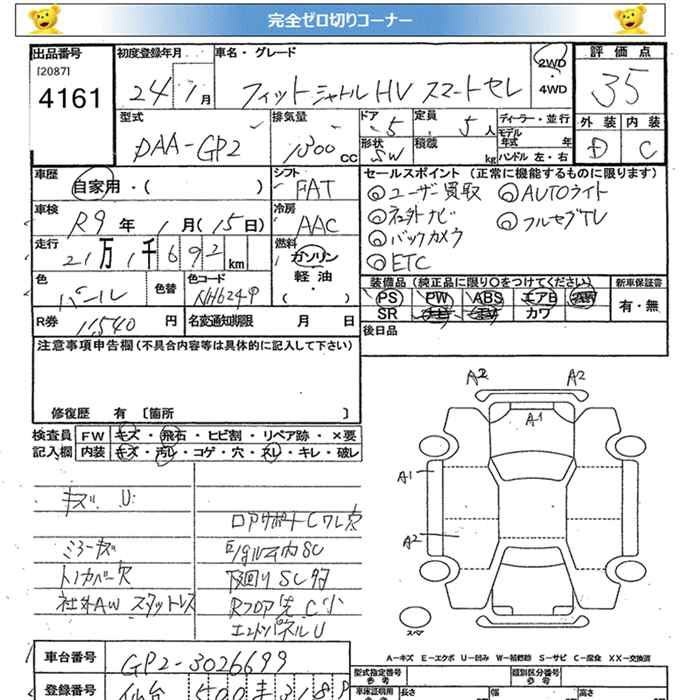 完全ゼロ切りコーナー
出品番号
[2087]
4161
初度登録年月
24年1月
車名・グレード
フィットシャトルHV スマートセレ
2WD
・
4WD
評価点
35
外装 内装
D C
型式
DAA-GP2
排気量
1300cc
ドア
5
定員
5人
形状
SW
積載
kg
ディーラー・並行
モデル年式 年
ハンドル 左・右
車歴
自家用・( )
シフト
FAT
車検
R9年1月(15日)
冷房
AAC
走行
21万1千692km
燃料
ガソリン
軽油
・( )
色
パール
色替
色コード
NH624P
R券
11540円
名変通知期限 月 日
セールスポイント(正常に機能するものに限ります)
◎ユーザー買取 ◎AUTOライト
◎社外ナビ ◎フルセグTV
◎バックカメラ
◎ETC
装備品(純正品に限り○をつけてください)
PS PW ABS エアB AW
SR カワ
新車保証書
有・無
後日品
注意事項申告欄(不具合内容等は具体的に記入して下さい)
修復歴 有 [箇所 ]
検査員記入欄
FW キズ・飛石・ヒビ割・リペア跡・×要
内装 キズ・汚レ・コゲ・穴・スレ・キレ・破レ
キズ U
ミラーキズ
トノカバー欠
社外AW スタットレス
ロアサポートCワレ穴
下廻りSC
エンドパネルU
A2 A2
A1
A1
A2
スペア
A-キズ E-エクボ U-凹み W-補修跡 S-サビ C-腐食 XX-交換済
車台番号
GP2-3026699
登録番号
仙台 500
型式指定番号
参考
類別区分番号
参考
車検証明用
長さ 幅 高さ